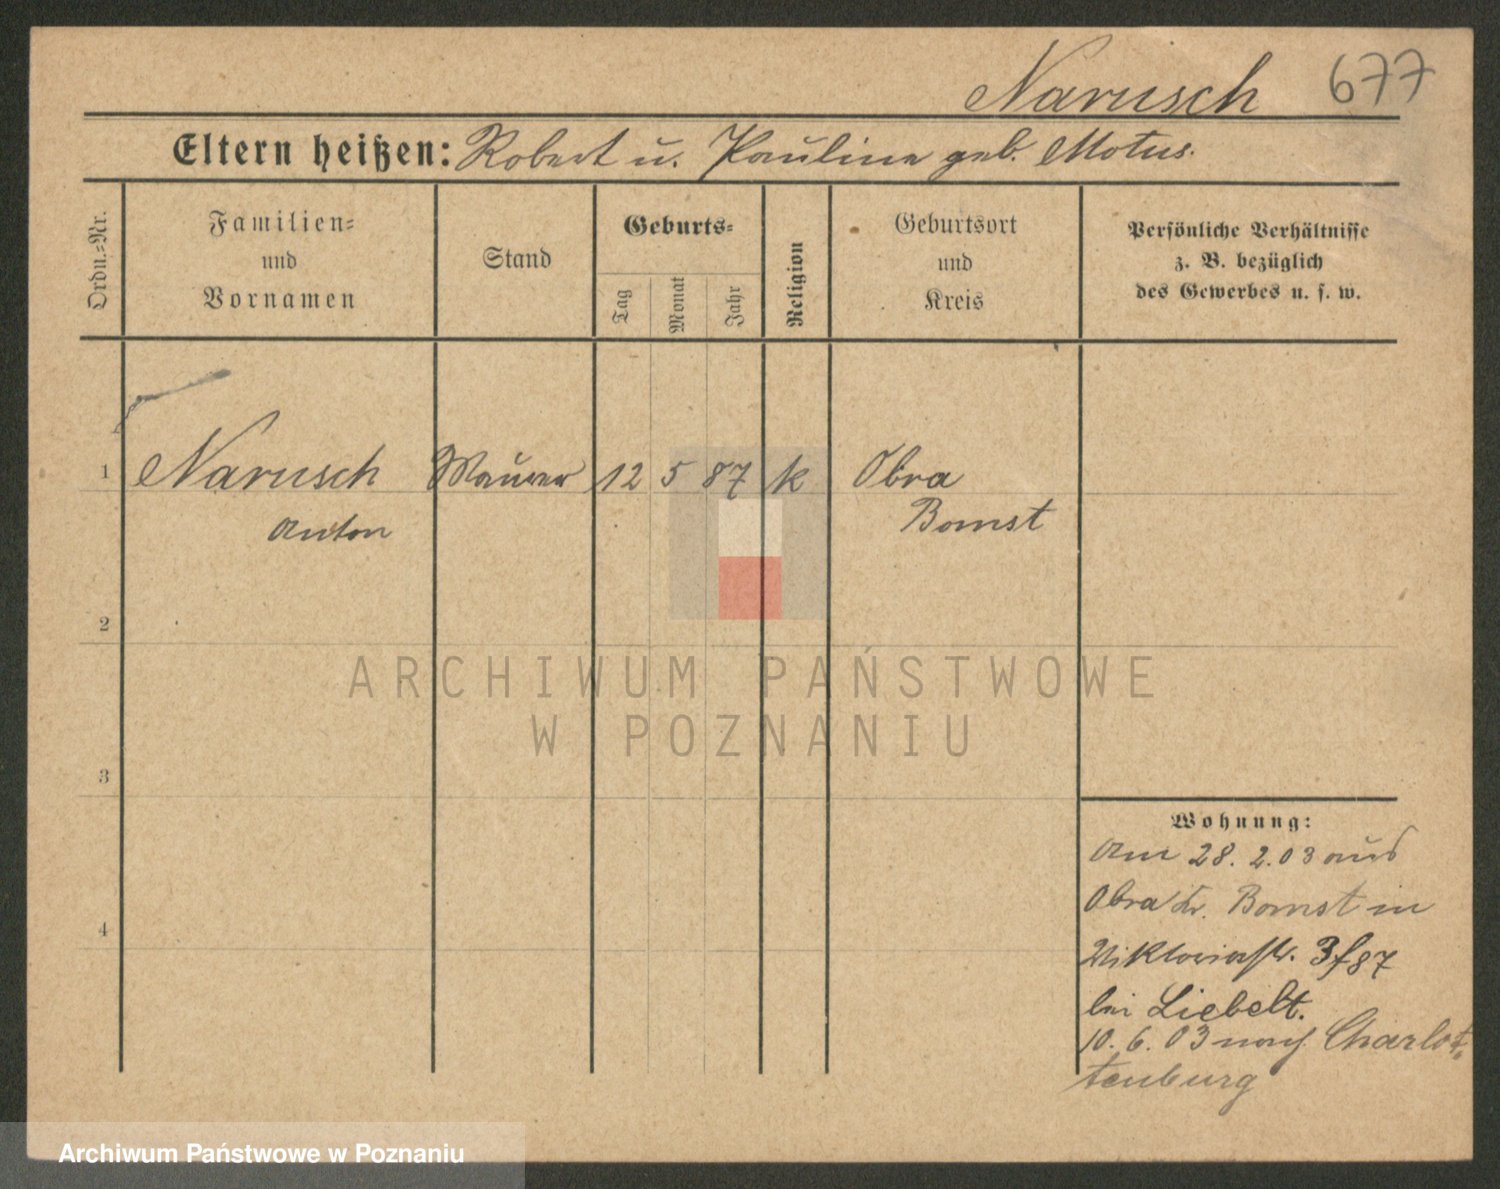 Narusch 677
Eltern heißen: Robert u. Pauline geb. Motus.
Ordn.=Nr.
Familien=
und
Vornamen
Stand
Geburts=
Tag
Monat
Jahr
Religion
Geburtsort
und
Kreis
Persönliche Verhältnisse
z. B. bezüglich
des Gewerbes u. s. w.
1 Narusch Maurer 12 5 87 k Obra
Anton Bomst
2
3
4
Wohnung:
Am 28. 2. 03 aus
Obra Kr. Bomst in
Viktoriastr. 87
bei Liebelt.
10. 6. 03 nach Charlot=
tenburg
ARCHIWUM PAŃSTWOWE
W POZNANIU
Archiwum Państwowe w Poznaniu